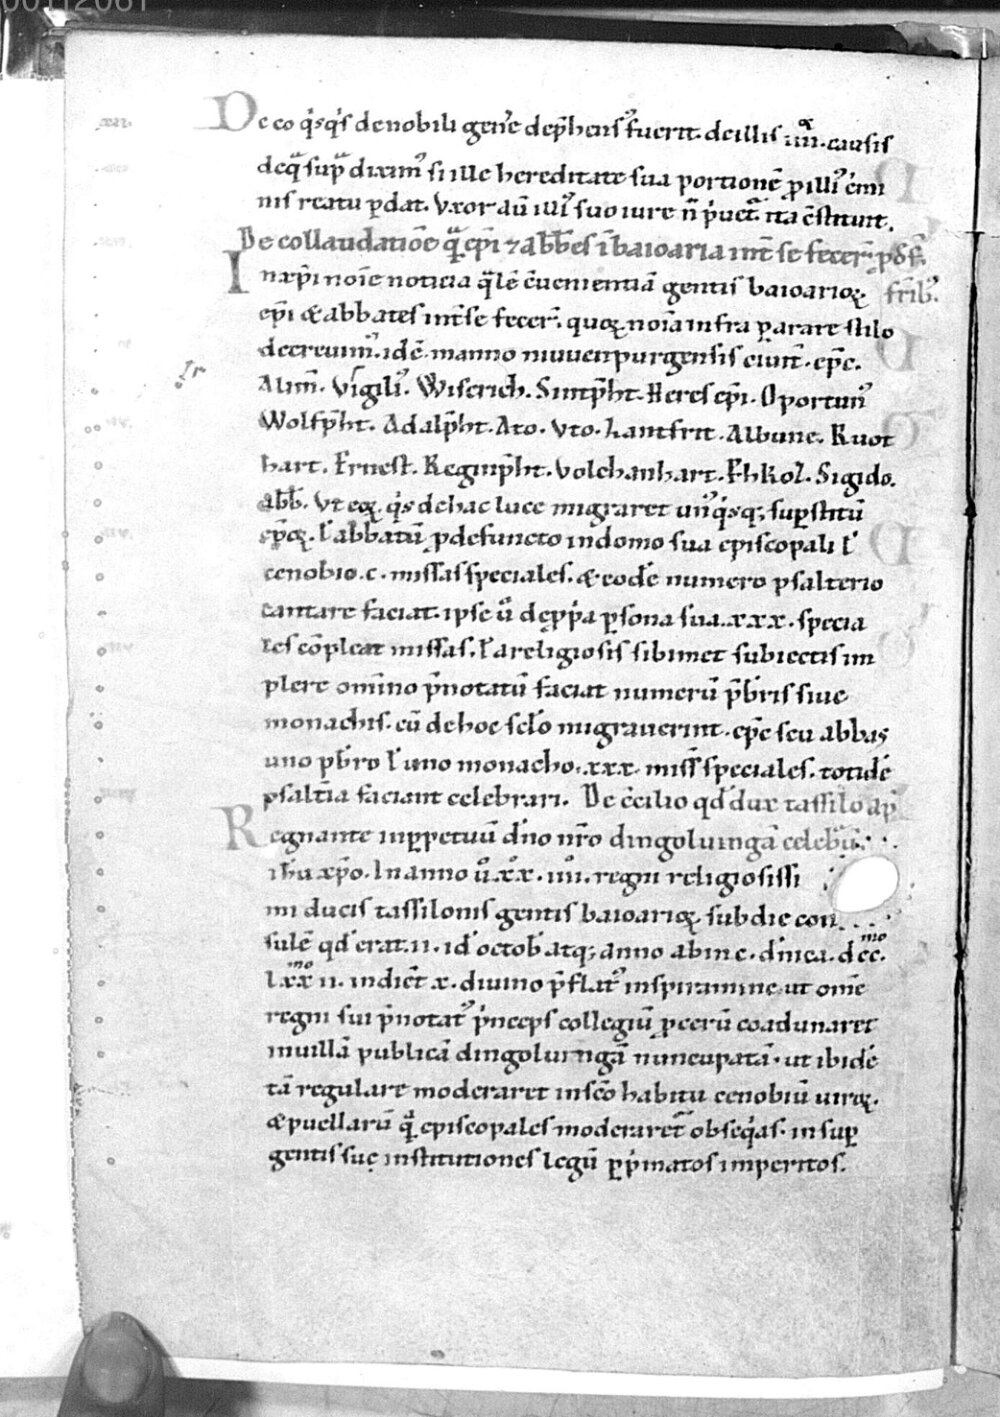 00112061
De eo q̇sq̇s de nobili geńe dep̄hensꝰ fuerit. de illis .iiii. causis
de q̃ sup̃ diximꝰ si ille hereditate sua portionē p illiꝰ c̄mi
nis reatu p̱dat. Vxor aū illiꝰ suo iure n̄ p̓uet᷑. ita c̄stituunt.
De collaudatiōe q̃ ep̄i ⁊ abb̄es ī baioaria int̄ se fecer̄ p def̄.
In xp̄i noīe noticia q̄lē c̄uenientiā gentis baioarioꝝ fr̄ibꝰ.
ep̄i & abbates int̄ se fecer̄. quoꝝ noīa infra p̱arare stilo
decreuimꝰ. idē. manno niuuenpurgensis ciuit̄. ep̄c.
Alim̄. Virgiliꝰ. Wiserich. Sintp̄ht. Heres ep̄i. Oportunꝰ
Wolfp̄ht. Adalp̄ht. Ato. Vto. Lantfrit. Albune. Ruot
hart. Ernest. Reginp̄ht. Volchanhart. Ehkol. Sigido.
abb̄. Vt eoꝝ q̇s de hac luce migraret un̓q̇sq; sup̱stitū
ep̄oꝝ. ł abbatū p defuncto in domo sua episcopali ł
cenobio .c. missas speciales. & eodē numero psalterio
cantare faciat. ipse ů de pp̓a p̱sona sua .xxx. specia
les cōpleat missas. ł a religiosis sibimet subiectis im
plere om̄ino p̄notatū faciat numerū p̄b̄ris siue
monachis. cū de hoc sc̄lo migrauerint. ep̄c seu abbas
uno p̄b̄ro ł uno monacho. xxx. miss̄ speciales. totidē
psalt̄ia faciant celebrari. De c̄cilio qd̄ dux tassilo ap̄
Regnante inp̱petuū dn̄o nr̄o dingoluingā celeb̄uit
ih̄u xp̄o. In anno ů.x̊x̊.iiii. regni religiosissi
mi ducis tassilonis gentis baioarioꝝ sub die con
sulē qd̄ erat .ii. id̄ octob̄ atq; anno ab inc̄. dn̄ica. dcc̄.mo
lxx̄mo ii. indict̄ x. diuino p̄flatꝰ inspiramine ut om̄e
regni sui p̄notatꝰ p̓nceps collegiū pcerū coadunaret
in uillā publicā dingoluingā nuncupatā. ut ibidē
tā regulare moderaret in sc̄o habitu cenobiū uiroꝝ.
& puellarū q̃ episcopales moderaret᷑ obseq̇as. insup̱
gentis suę institutiones legū p̱ p̓matos imperitos.